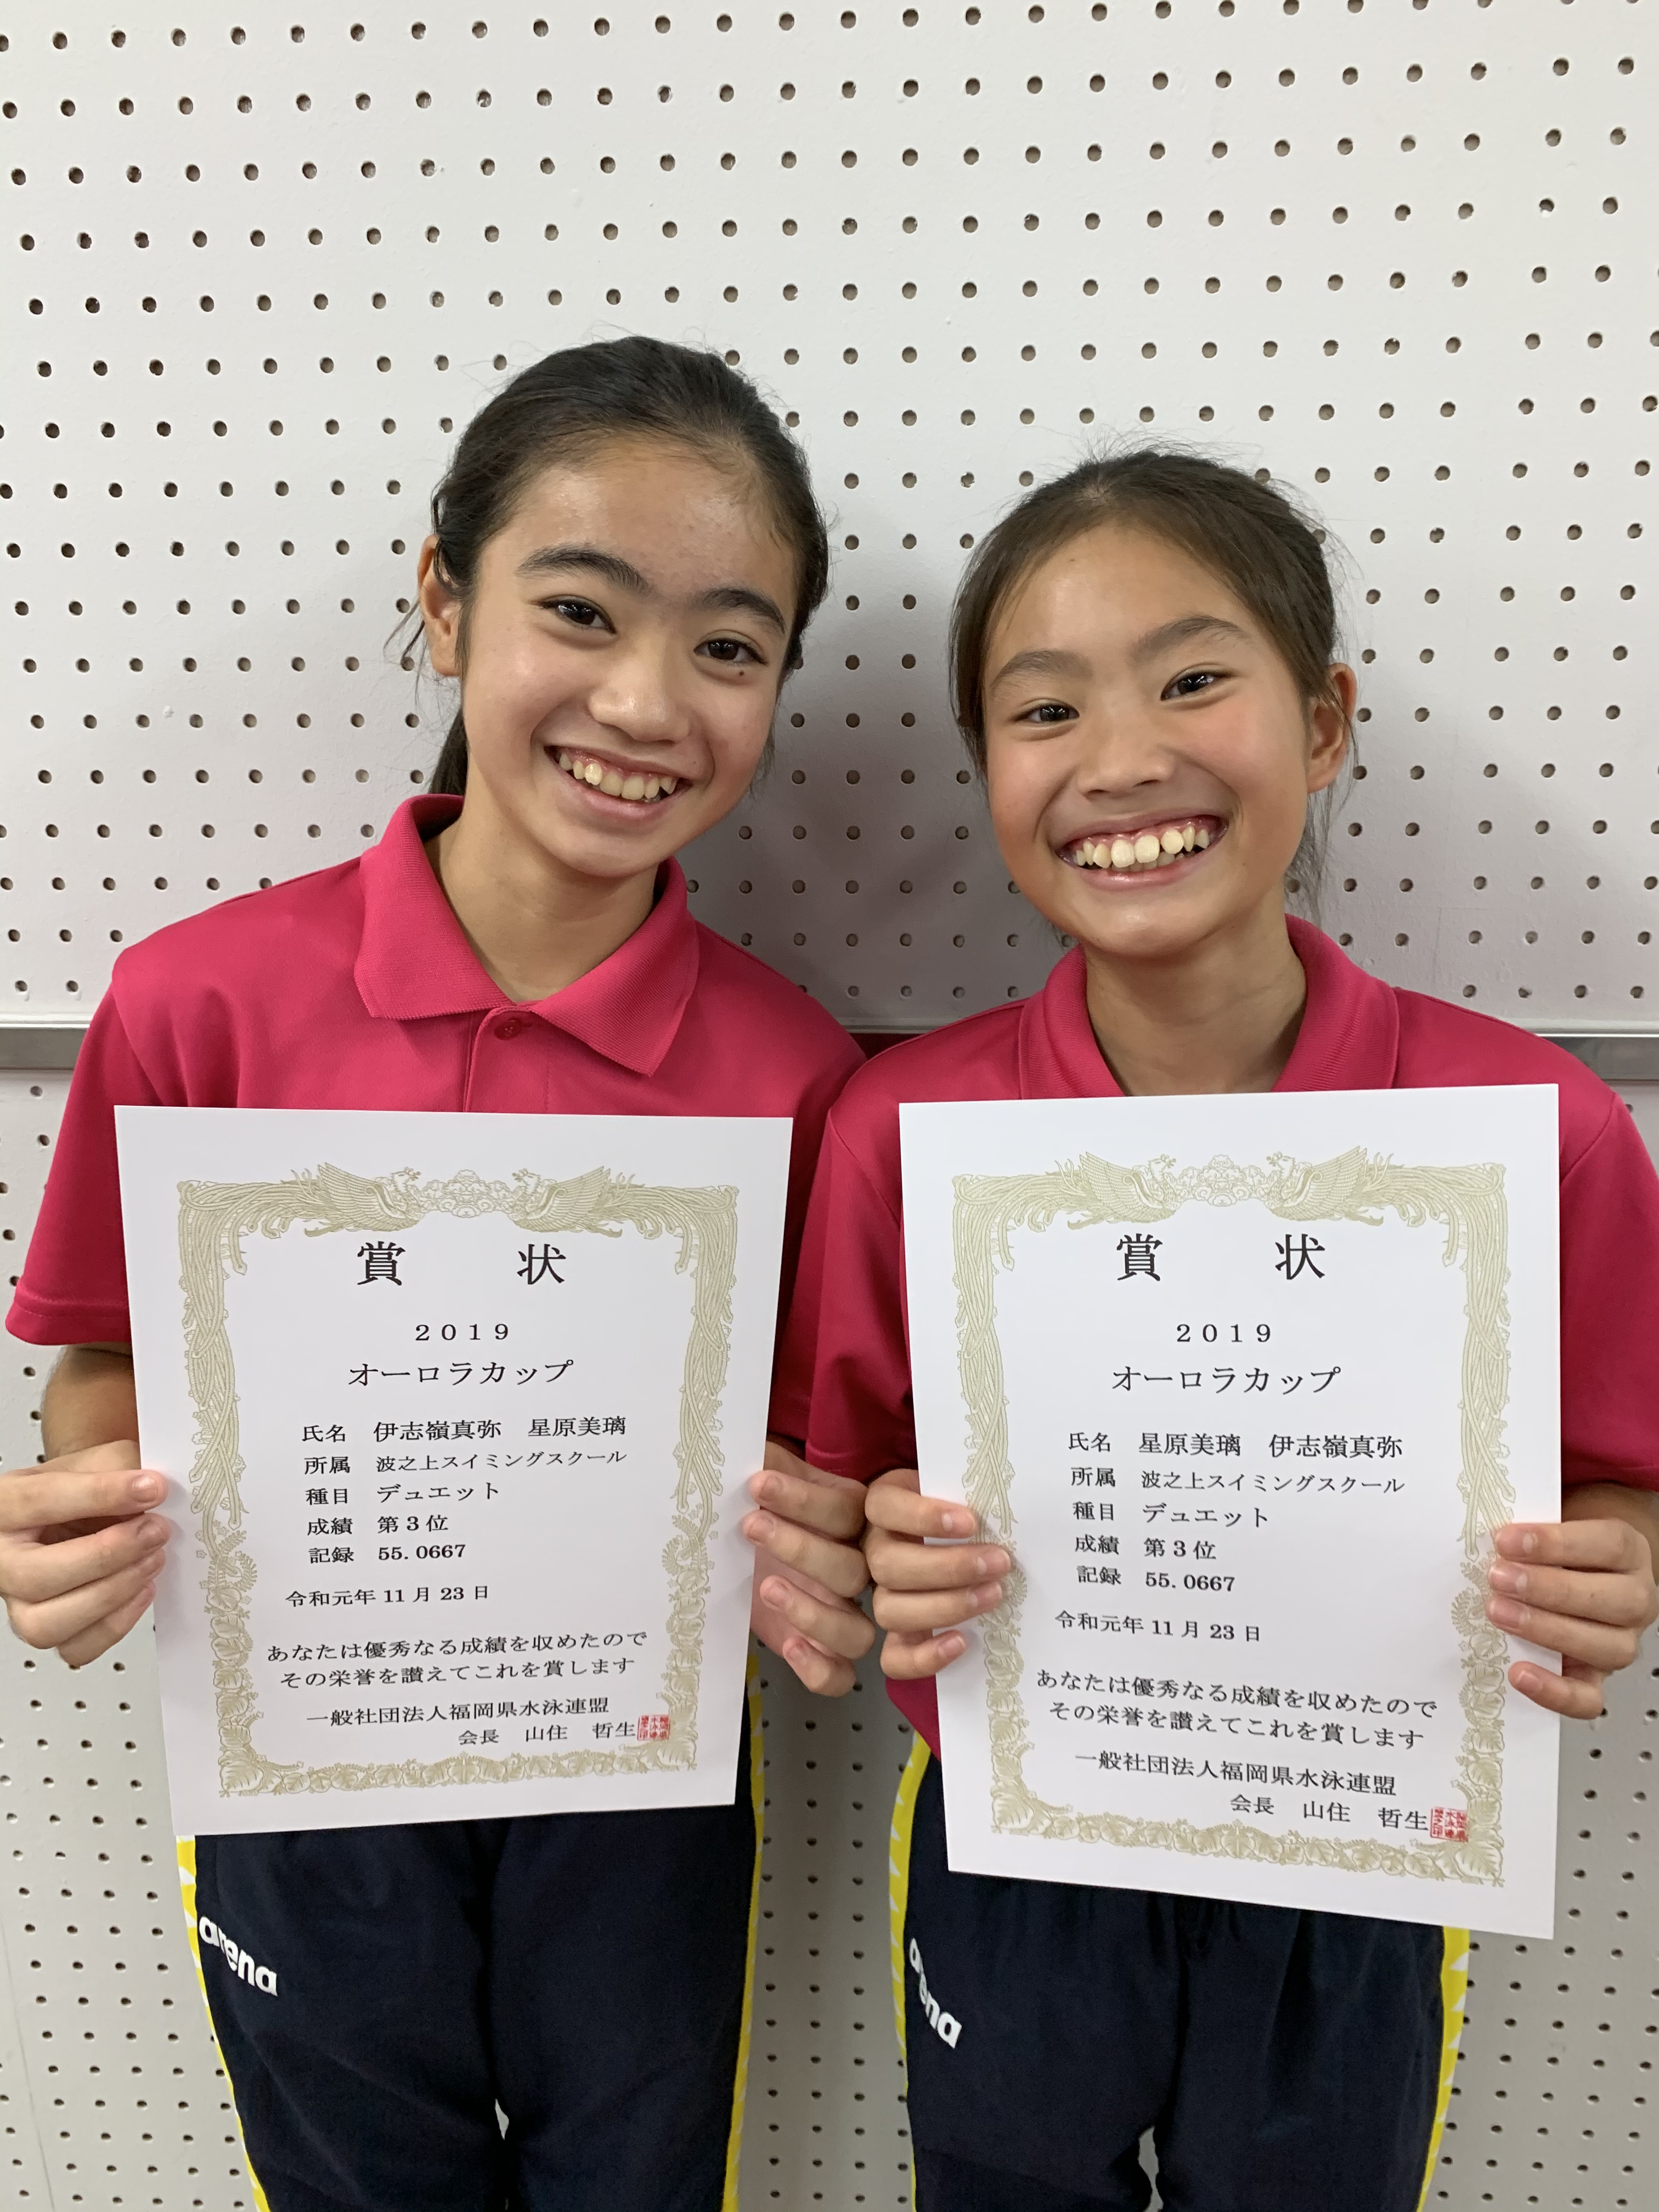 賞 状
2019
オーロラカップ
氏名 伊志嶺真弥 星原美璃
所属 波之上スイミングスクール
種目 デュエット
成績 第3位
記録 55.0667
令和元年11月23日
あなたは優秀なる成績を収めたので
その栄誉を讃えてこれを賞します
一般社団法人福岡県水泳連盟
会長 山住 哲生
arena
賞 状
2019
オーロラカップ
氏名 星原美璃 伊志嶺真弥
所属 波之上スイミングスクール
種目 デュエット
成績 第3位
記録 55.0667
令和元年11月23日
あなたは優秀なる成績を収めたので
その栄誉を讃えてこれを賞します
一般社団法人福岡県水泳連盟
会長 山住 哲生
arena